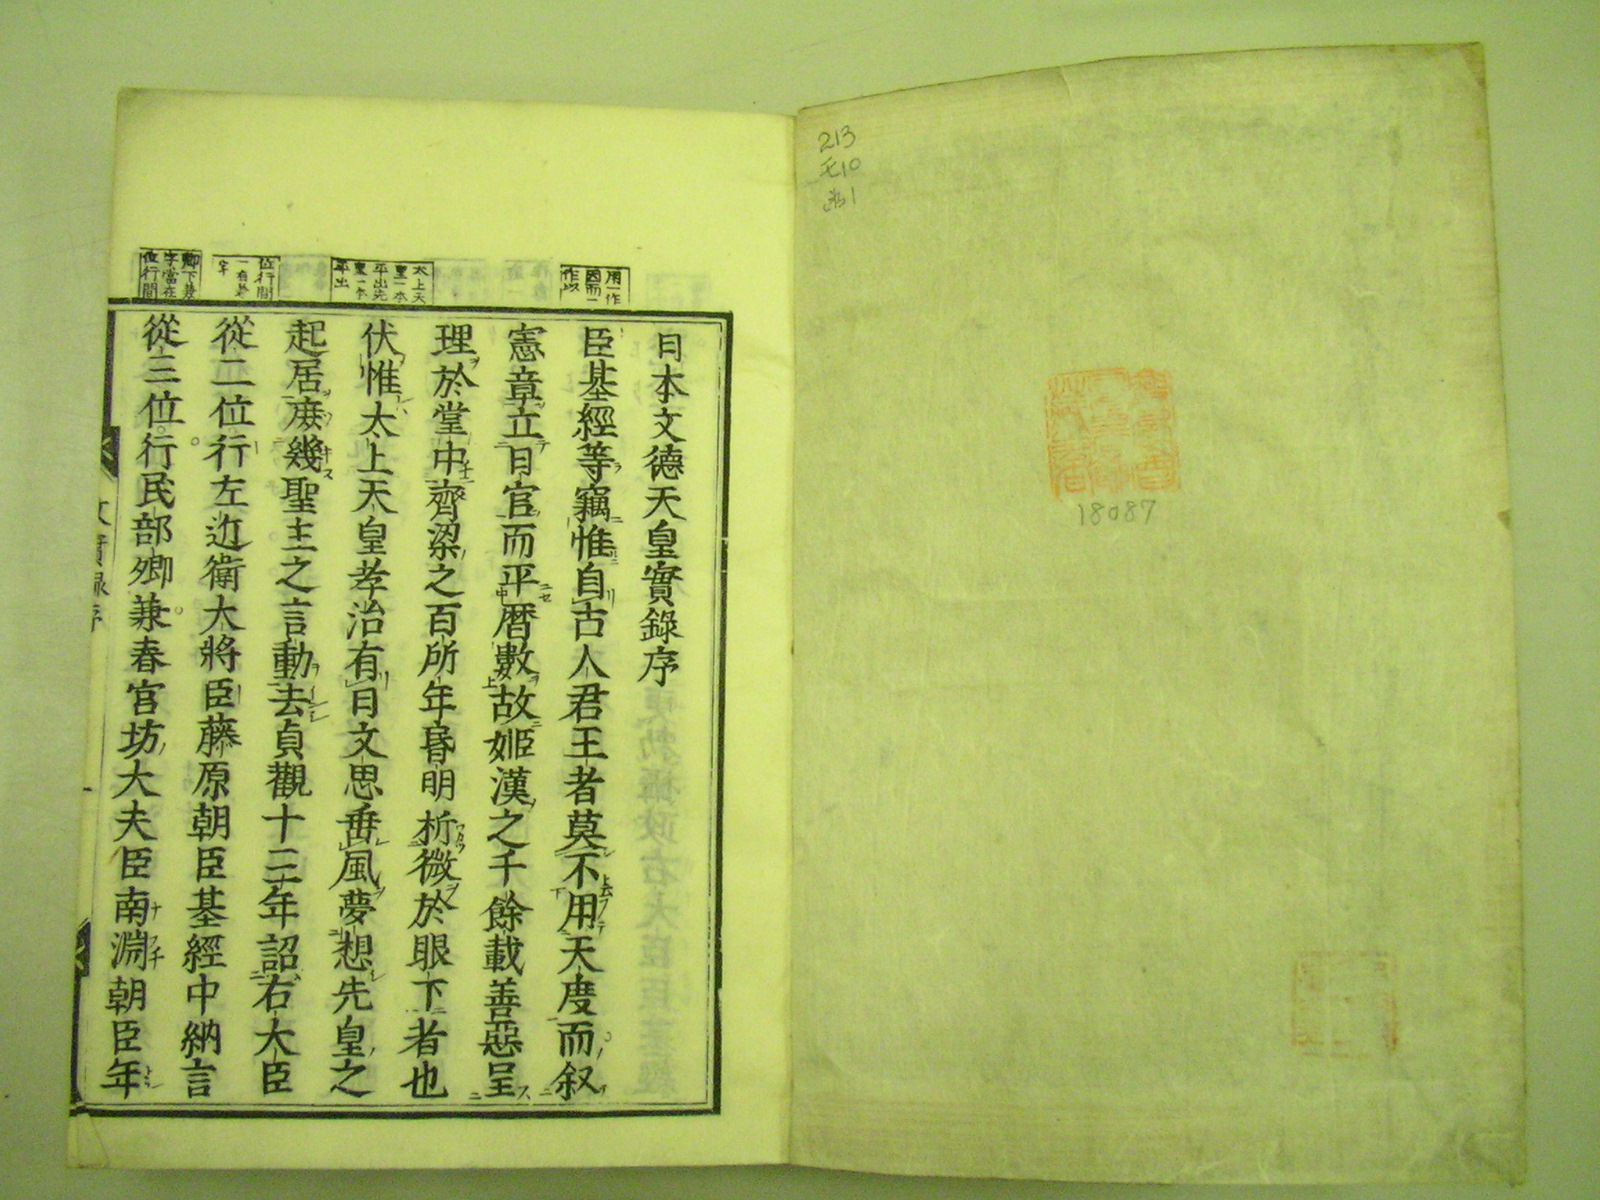 213
モ10
18087
日本文德天皇實錄序
臣基經等竊惟自古人君王者莫不用天度而叙
憲章立日官而平曆數故姬漢之千餘載善惡呈
理於堂中齊梁之百所年昏明析微於眼下者也
伏惟太上天皇孝治有日文思垂風夢想先皇之
起居庶幾聖主之言動去貞觀十三年詔右大臣
從二位行左近衛大將臣藤原朝臣基經中納言
從三位行民部卿兼春宮坊大夫臣南淵朝臣年
用一作
因而一
作以
太上天
皇一本
平出先
皇一本
平出
位行間
一有兼
字
卿下兼
字當在
位行間
文實錄序
一